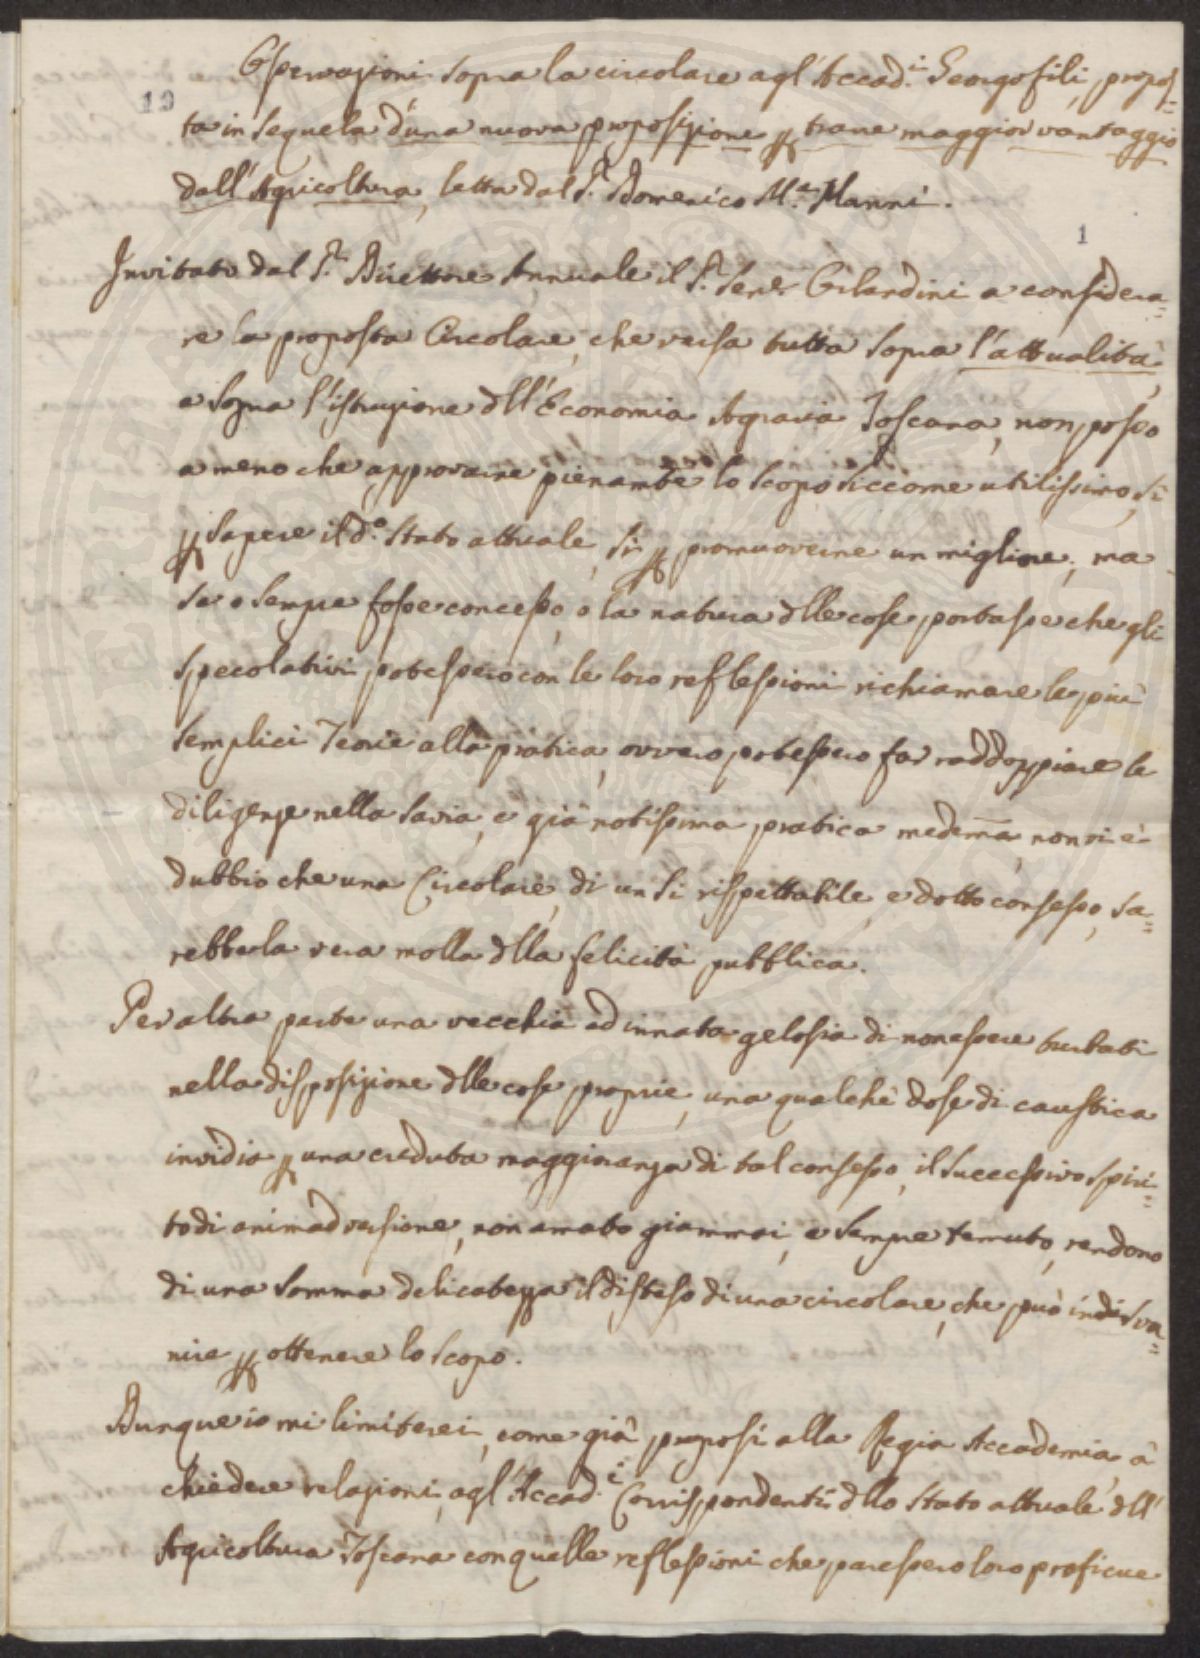 Osservazioni sopra la circolare agl'Accad.i Georgofili, propos=
19
ta in sequela d'una nuova proposizione p trarne maggior vantaggio
dall'Agricoltura, letta dal S.r Domenico M.a Manni.
1
Invitato dal S.r Direttore Annuale il S.r Sen.r Orlandini a considera=
re la proposta Circolare, che versa tutta sopra l'attualità,
e sopra l'istruzione dll'Economia Agraria Toscana, non posso
a meno che approvarne pienamte lo scopo siccome utilissimo, sì
p sapere il do. stato attuale, sì p promuoverne un migliore; ma
se o sempre fosse concesso, o la natura dlle cose portasse che gli
specolativi potessero con le loro reflessioni richiamare le più
semplici Teorie alla pratica, ovvero potessero far raddoppiare le
diligenze nella savia, e già notissima pratica medema, non vi è
dubbio che una Circolare, di un sì rispettabile, e dotto consesso, sa=
rebbe la vera molla dlla felicità pubblica.
Per altra parte una vecchia ed innata gelosia di non essere turbati
nella disposizione dlle cose proprie, una qualche dose di caustica
invidia p una creduta maggioranza di tal consesso, il successivo spiri=
to di animadversione, non amato giammai, e sempre temuto, rendono
di una somma delicatezza il disteso di una circolare, che può indi sva=
nire p ottenere lo scopo.
Dunque io mi limiterei, come già proposi alla Regia Accademia, à
chiedere relazioni, agl'Accad.i Corrispondenti dllo stato attuale dll'
Agricoltura Toscana con quelle reflessioni che paressero loro proficue